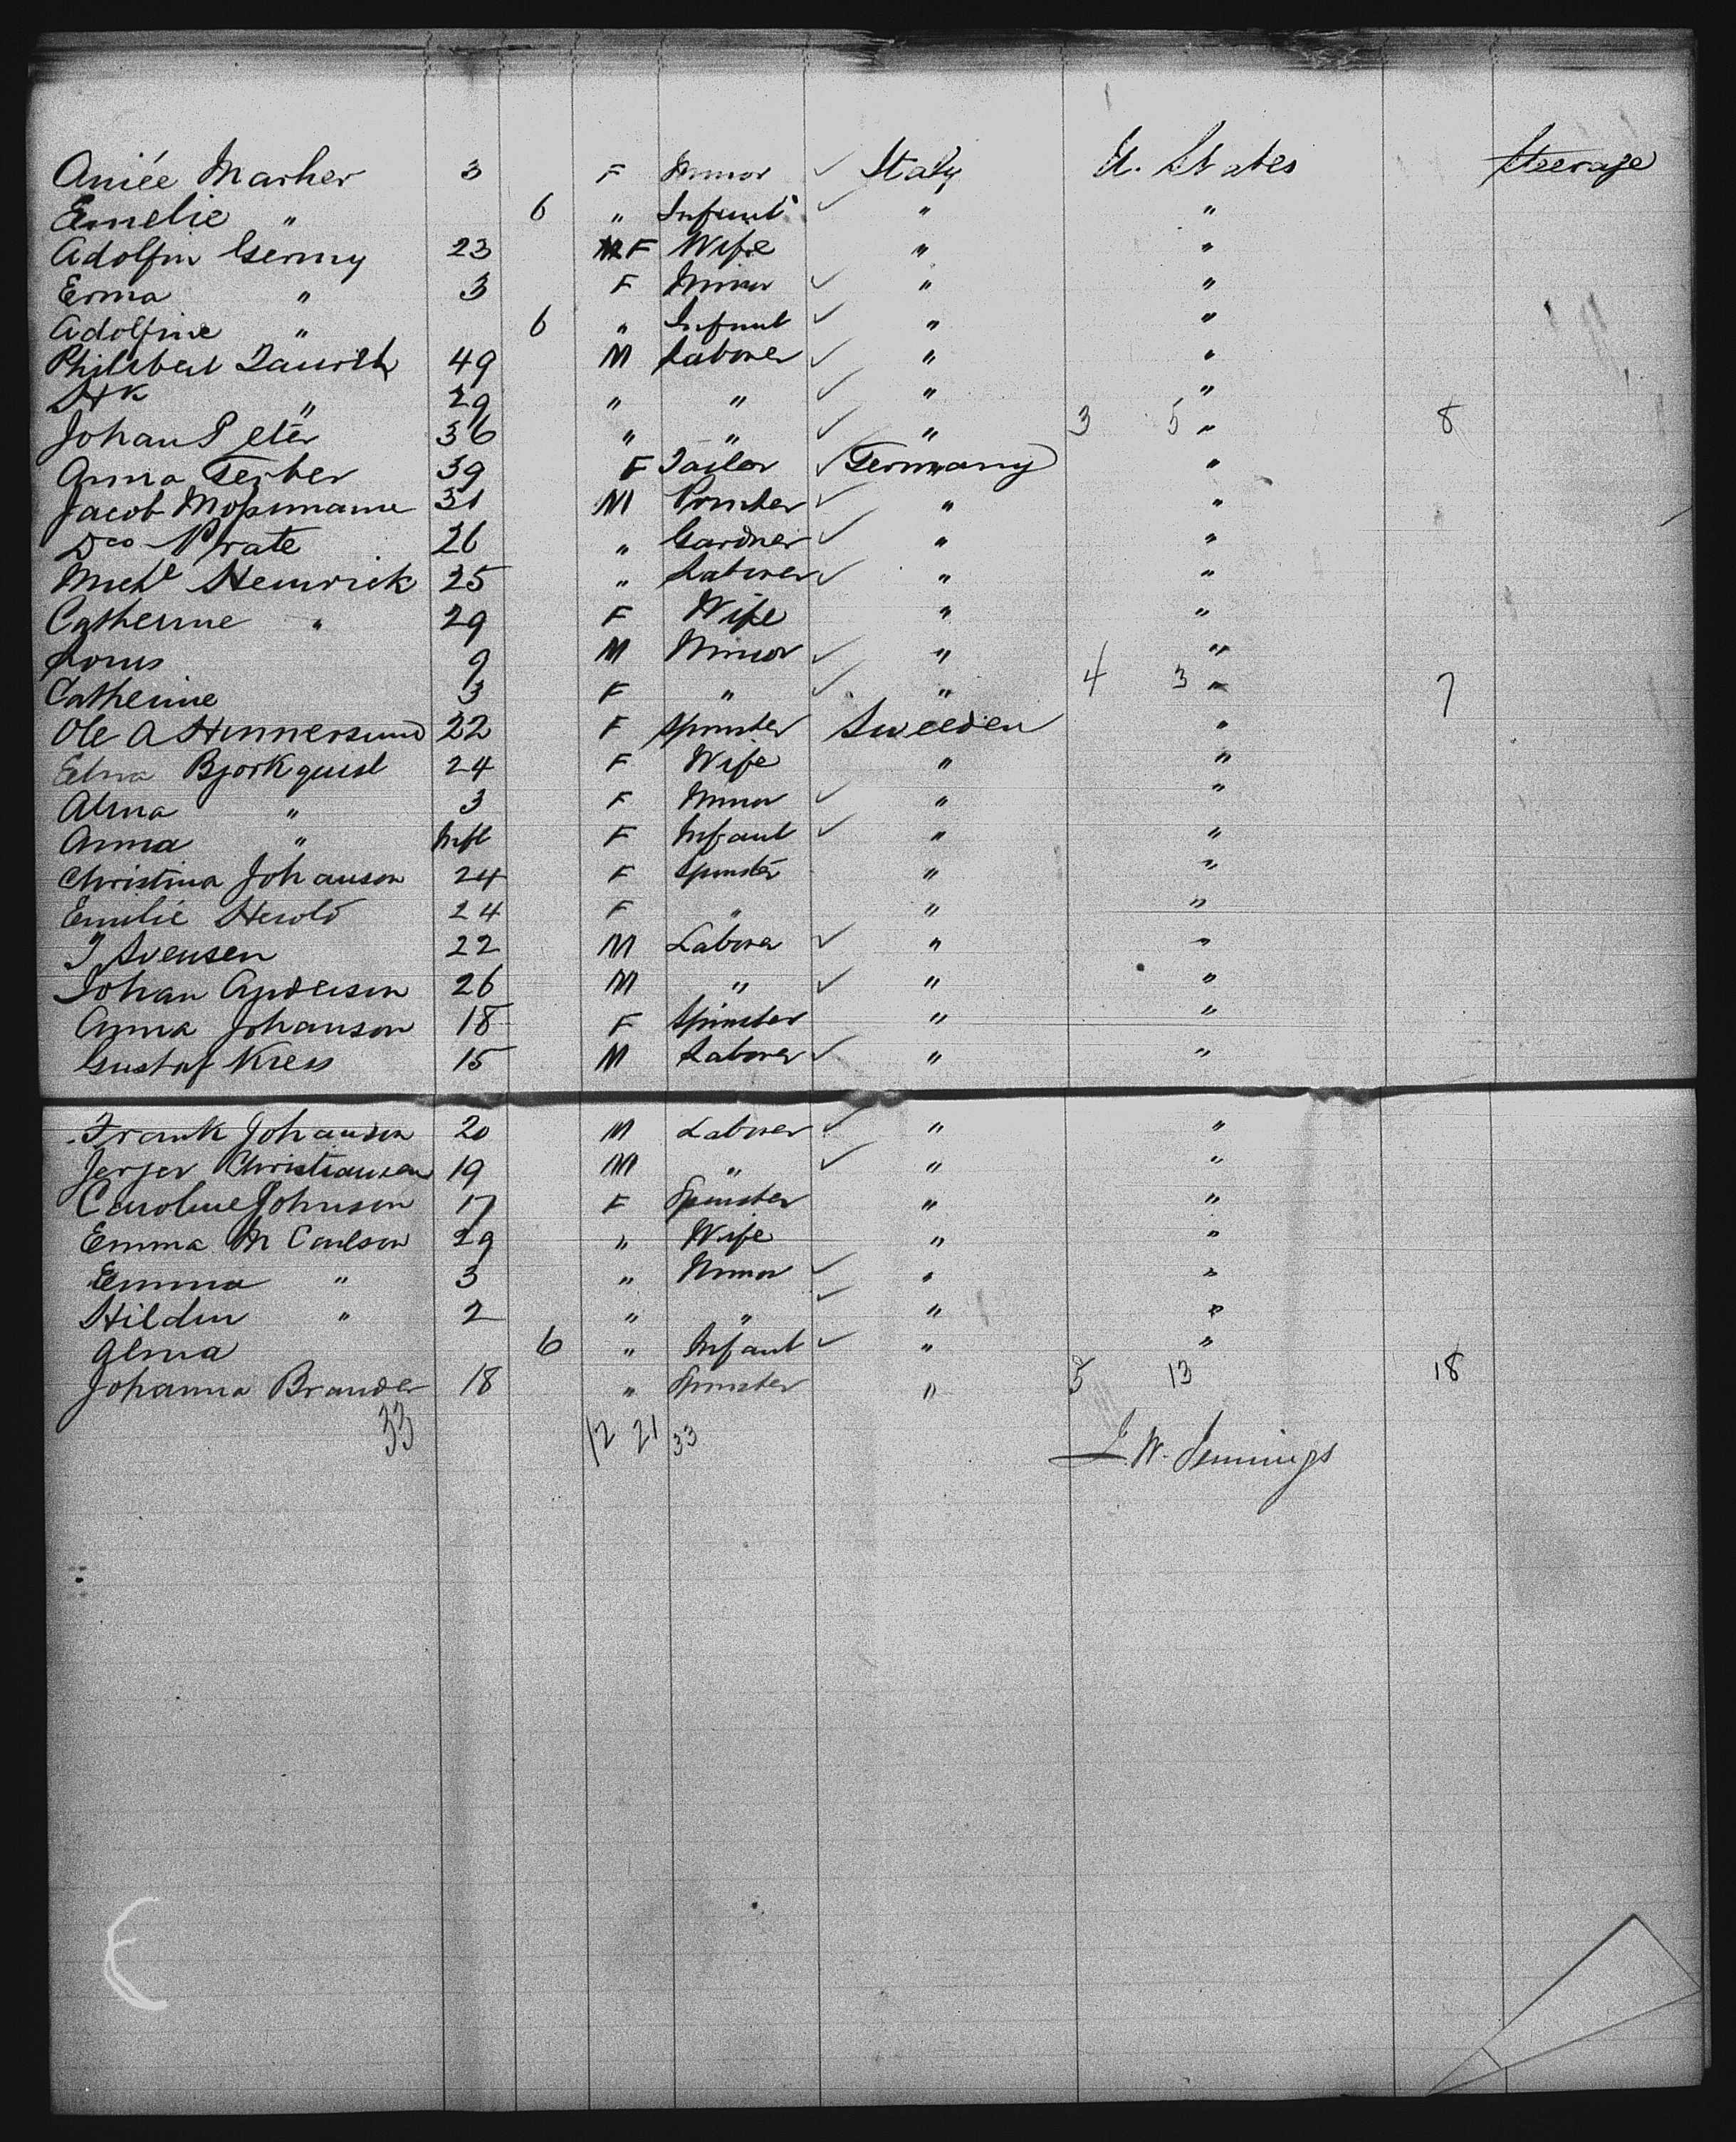 Aniée Marher 3 F Minor ✓ Italy U. States Steerage
Emelie " 6 " Infant ✓ " "
Adolfin Germy 23 F Wife " "
Erma " 3 F Minor ✓ " "
Adolfine " 6 " Infant ✓ " "
Philibert 49 M Laborer ✓ " "
" 29 " " ✓ " "
Johan Peter 36 " " ✓ " 3 5 " 8
Anna Gerber 39 F Tailor ✓ Germany "
Jacob 31 M Printer ✓ " "
Prate 26 " Gardner ✓ " "
Michl Heinrick 25 " Laborer ✓ " "
Catherine " 29 F Wife " "
Louis 9 M Minor ✓ " "
Catherine 3 F " ✓ " 4 3 " 7
Ole A Hinnersund 22 F Spinster Sweeden "
Edna Bjorkquist 24 F Wife " "
Alma " 3 F Minor ✓ " "
Anna " Inft F Infant ✓ " "
Christina Johanson 24 F Spinster " "
Emilie Herold 24 F " " "
J Svensen 22 M Laborer ✓ " "
Johan Anderson 26 M " ✓ " "
Anna Johanson 18 F Spinster " "
Gustaf Kress 15 M Laborer ✓ " "
Frank Johanson 20 M Laborer ✓ " "
Jerjer Christiansen 19 M " ✓ " "
Caroline Johnson 17 F Spinster " "
Emma M Carlson 29 " Wife " "
Emma " 3 " Minor ✓ " "
Hildur " 2 " " ✓ " "
Alma 6 " Infant ✓ " "
Johanna Brander 18 " Spinster " 13 18
33 12 21 33
J. W. Jennings